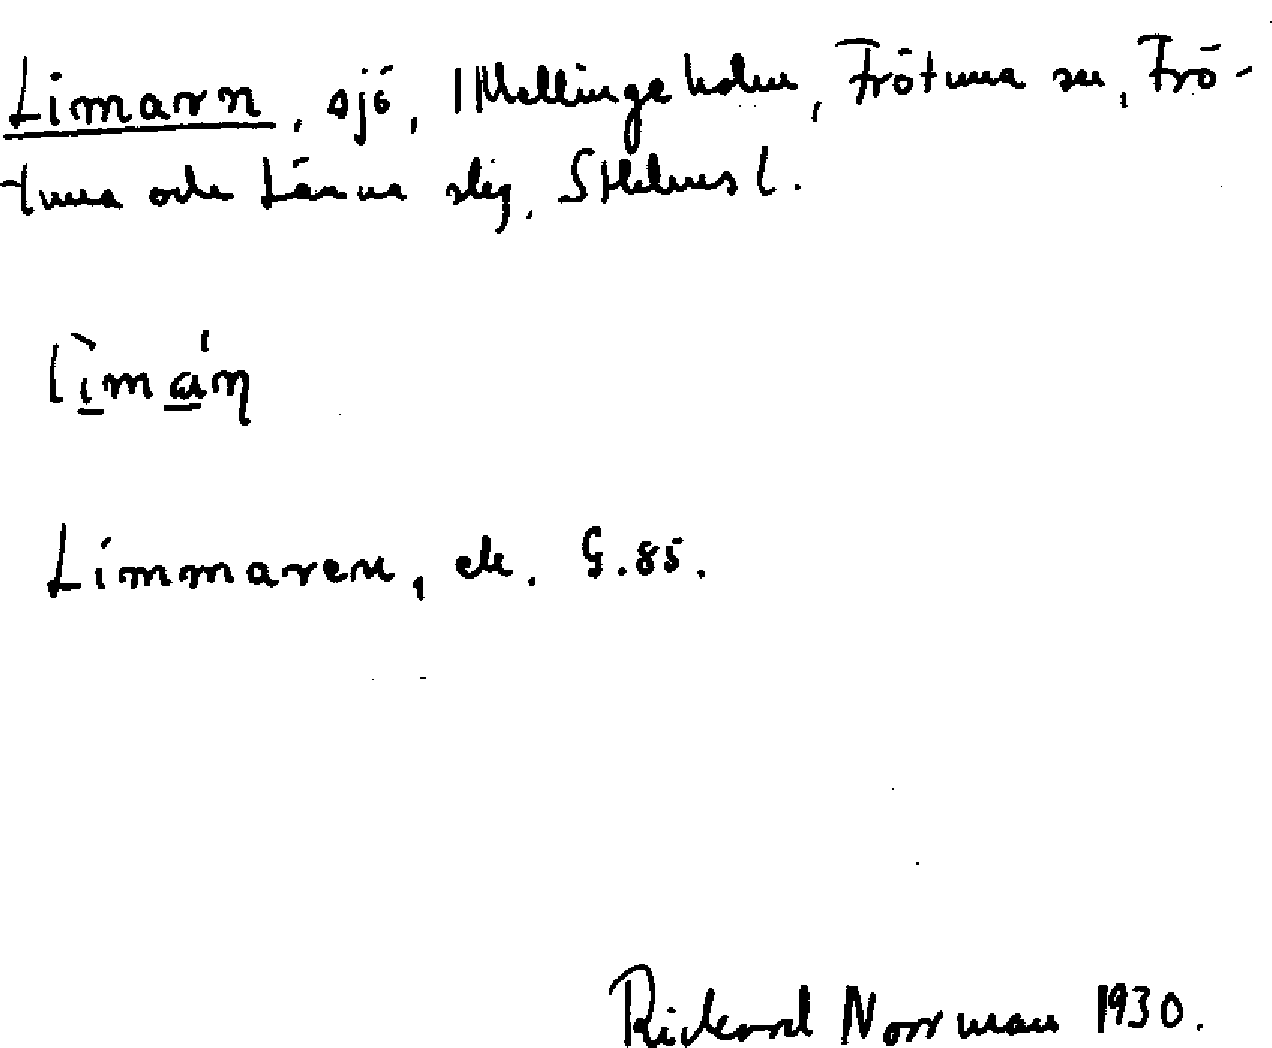 Limarn, sjö, Mellingeholm, Frötuna sn, Frö-
tuna och Länna slg, Sthlms l.
lìmáɳ
Limmaren, ek. G.85.
Rickard Norrman 1930.